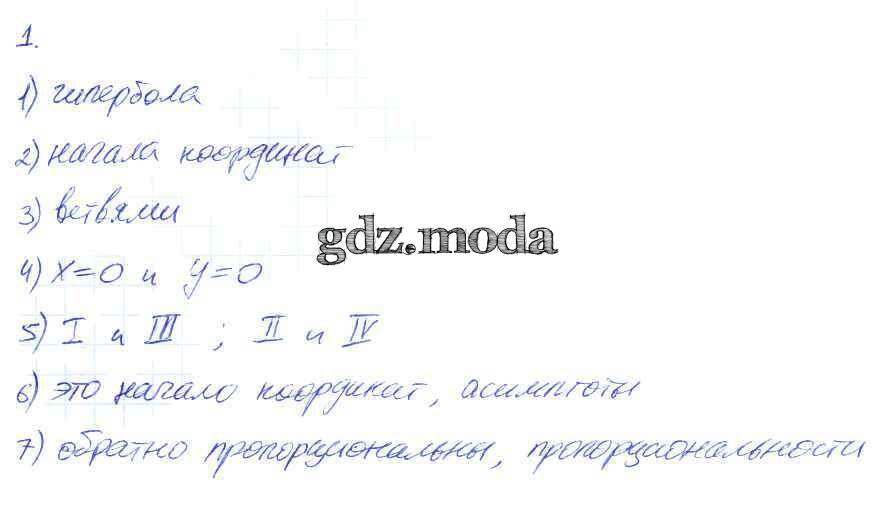 1.
1) гипербола
2) начала координат
3) ветвями
gdz.moda
4) x=0 и y=0
5) I и III ; II и IV
6) это начало координат, асимптоты
7) обратно пропорциональны, пропорциональности